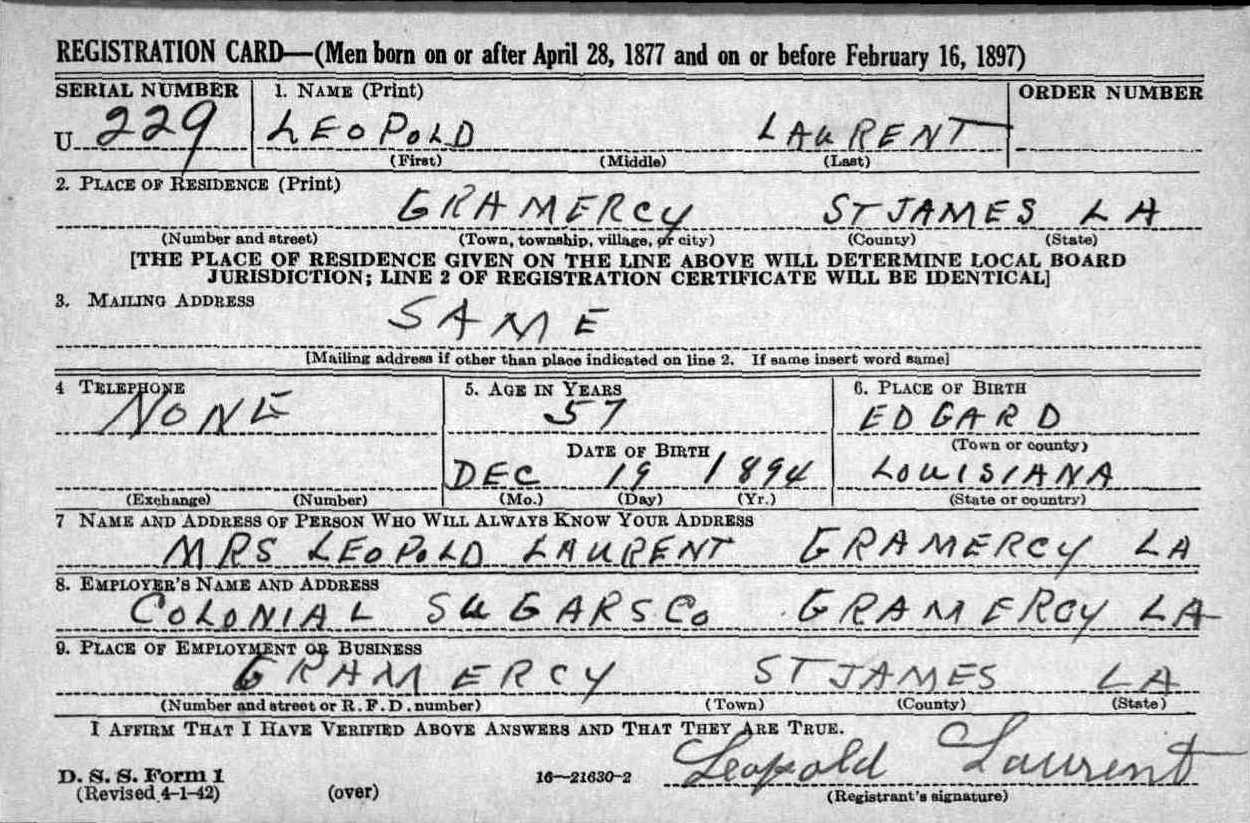 REGISTRATION CARD—(Men born on or after April 28, 1877 and on or before February 16, 1897)
SERIAL NUMBER 1. NAME (Print) ORDER NUMBER
U 229 LEOPOLD LAURENT
(First) (Middle) (Last)
2. PLACE OF RESIDENCE (Print)
GRAMERCY ST JAMES LA
(Number and street) (Town, township, village, or city) (County) (State)
[THE PLACE OF RESIDENCE GIVEN ON THE LINE ABOVE WILL DETERMINE LOCAL BOARD
JURISDICTION; LINE 2 OF REGISTRATION CERTIFICATE WILL BE IDENTICAL]
3. MAILING ADDRESS
SAME
[Mailing address if other than place indicated on line 2. If same insert word same]
4 TELEPHONE 5. AGE IN YEARS 6. PLACE OF BIRTH
NONE 57 EDGARD
DATE OF BIRTH (Town or county)
DEC 19 1894 LOUISIANA
(Exchange) (Number) (Mo.) (Day) (Yr.) (State or country)
7 NAME AND ADDRESS OF PERSON WHO WILL ALWAYS KNOW YOUR ADDRESS
MRS LEOPOLD LAURENT GRAMERCY LA
8. EMPLOYER'S NAME AND ADDRESS
COLONIAL SUGARS Co GRAMERCY LA
9. PLACE OF EMPLOYMENT OR BUSINESS
GRAMERCY ST JAMES LA
(Number and street or R. F. D. number) (Town) (County) (State)
I AFFIRM THAT I HAVE VERIFIED ABOVE ANSWERS AND THAT THEY ARE TRUE.
Leopold Laurent
D. S. S. Form 1 16—21630-2
(Revised 4-1-42) (over) (Registrant's signature)